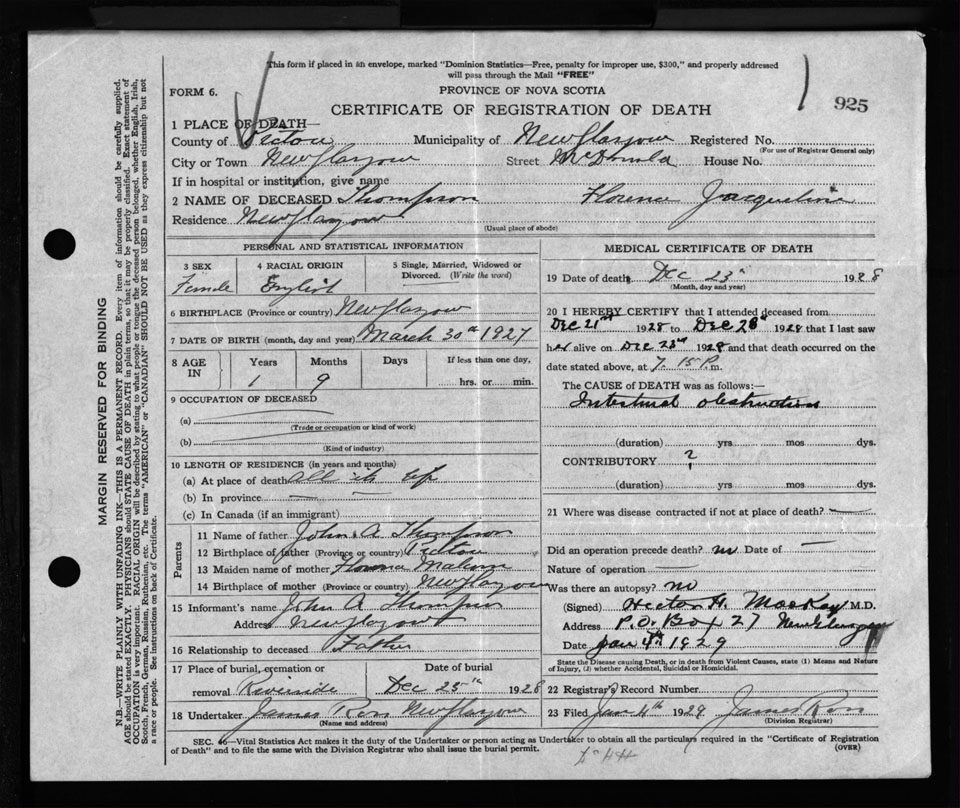 This form if placed in an envelope, marked "Dominion Statistics—Free, penalty for improper use, $300," and properly addressed
will pass through the Mail "FREE"
FORM 6.
PROVINCE OF NOVA SCOTIA
925
CERTIFICATE OF REGISTRATION OF DEATH
1 PLACE OF DEATH—
County of Pictou Municipality of New Glasgow Registered No.
(For use of Registrar General only)
City or Town New Glasgow Street McDonald House No.
If in hospital or institution, give name
2 NAME OF DECEASED Thompson Florence Jacqueline
Residence New Glasgow
(Usual place of abode)
PERSONAL AND STATISTICAL INFORMATION
3 SEX 4 RACIAL ORIGIN 5 Single, Married, Widowed or
Divorced. (Write the word)
Female English
6 BIRTHPLACE (Province or country) New Glasgow
7 DATE OF BIRTH (month, day and year) March 30th 1927
8 AGE IN Years Months Days If less than one day,
1 9 hrs. or min.
9 OCCUPATION OF DECEASED
(a)
(Trade or occupation or kind of work)
(b)
(Kind of industry)
10 LENGTH OF RESIDENCE (in years and months)
(a) At place of death all its life
(b) In province — —
(c) In Canada (if an immigrant)
Parents
11 Name of father John A Thompson
12 Birthplace of father (Province or country) Pictou
13 Maiden name of mother Florence
14 Birthplace of mother (Province or country) New Glasgow
15 Informant's name John A Thompson
Address New Glasgow
16 Relationship to deceased Father
17 Place of burial, cremation or Date of burial
removal Riverside Dec 25th 1928
18 Undertaker James Ross New Glasgow
(Name and address)
MEDICAL CERTIFICATE OF DEATH
19 Date of death Dec 23rd 1928
(Month, day and year)
20 I HEREBY CERTIFY that I attended deceased from
Dec 21st 1928 to Dec 23rd 1928 that I last saw
her alive on Dec 23rd 1928 and that death occurred on the
date stated above, at 7.15 P.m.
The CAUSE of DEATH was as follows:—
Intestinal obstruction
(duration) yrs mos dys.
CONTRIBUTORY ?
(duration) yrs. mos. dys.
21 Where was disease contracted if not at place of death? —
Did an operation precede death? no Date of —
Nature of operation —
Was there an autopsy? no
(Signed) Hector H. MacKay M.D.
Address P.O. Box 27 New Glasgow
Date Jan 4th 1929
State the Disease causing Death, or in death from Violent Causes, state (1) Means and Nature
of Injury, (2) whether Accidental, Suicidal or Homicidal.
22 Registrar's Record Number
23 Filed Jan 4th 1929 James Ross
(Division Registrar)
SEC. 46—Vital Statistics Act makes it the duty of the Undertaker or person acting as Undertaker to obtain all the particulars required in the "Certificate of Registration
of Death" and to file the same with the Division Registrar who shall issue the burial permit.
(OVER)
MARGIN RESERVED FOR BINDING
N.B.—WRITE PLAINLY WITH UNFADING INK—THIS IS A PERMANENT RECORD. Every item of information should be carefully supplied.
AGE should be stated EXACTLY. PHYSICIANS should STATE CAUSE OF DEATH in plain terms, so that it may be properly classified. Exact statement of
OCCUPATION is very important. RACIAL ORIGIN will be described by stating to what people or tongue the deceased person belonged, whether English, Irish,
Scotch, French, German, Russian, Ruthenian, etc. The terms "AMERICAN" or "CANADIAN" SHOULD NOT BE USED as they express citizenship but not
a race or people. See instructions on back of Certificate.